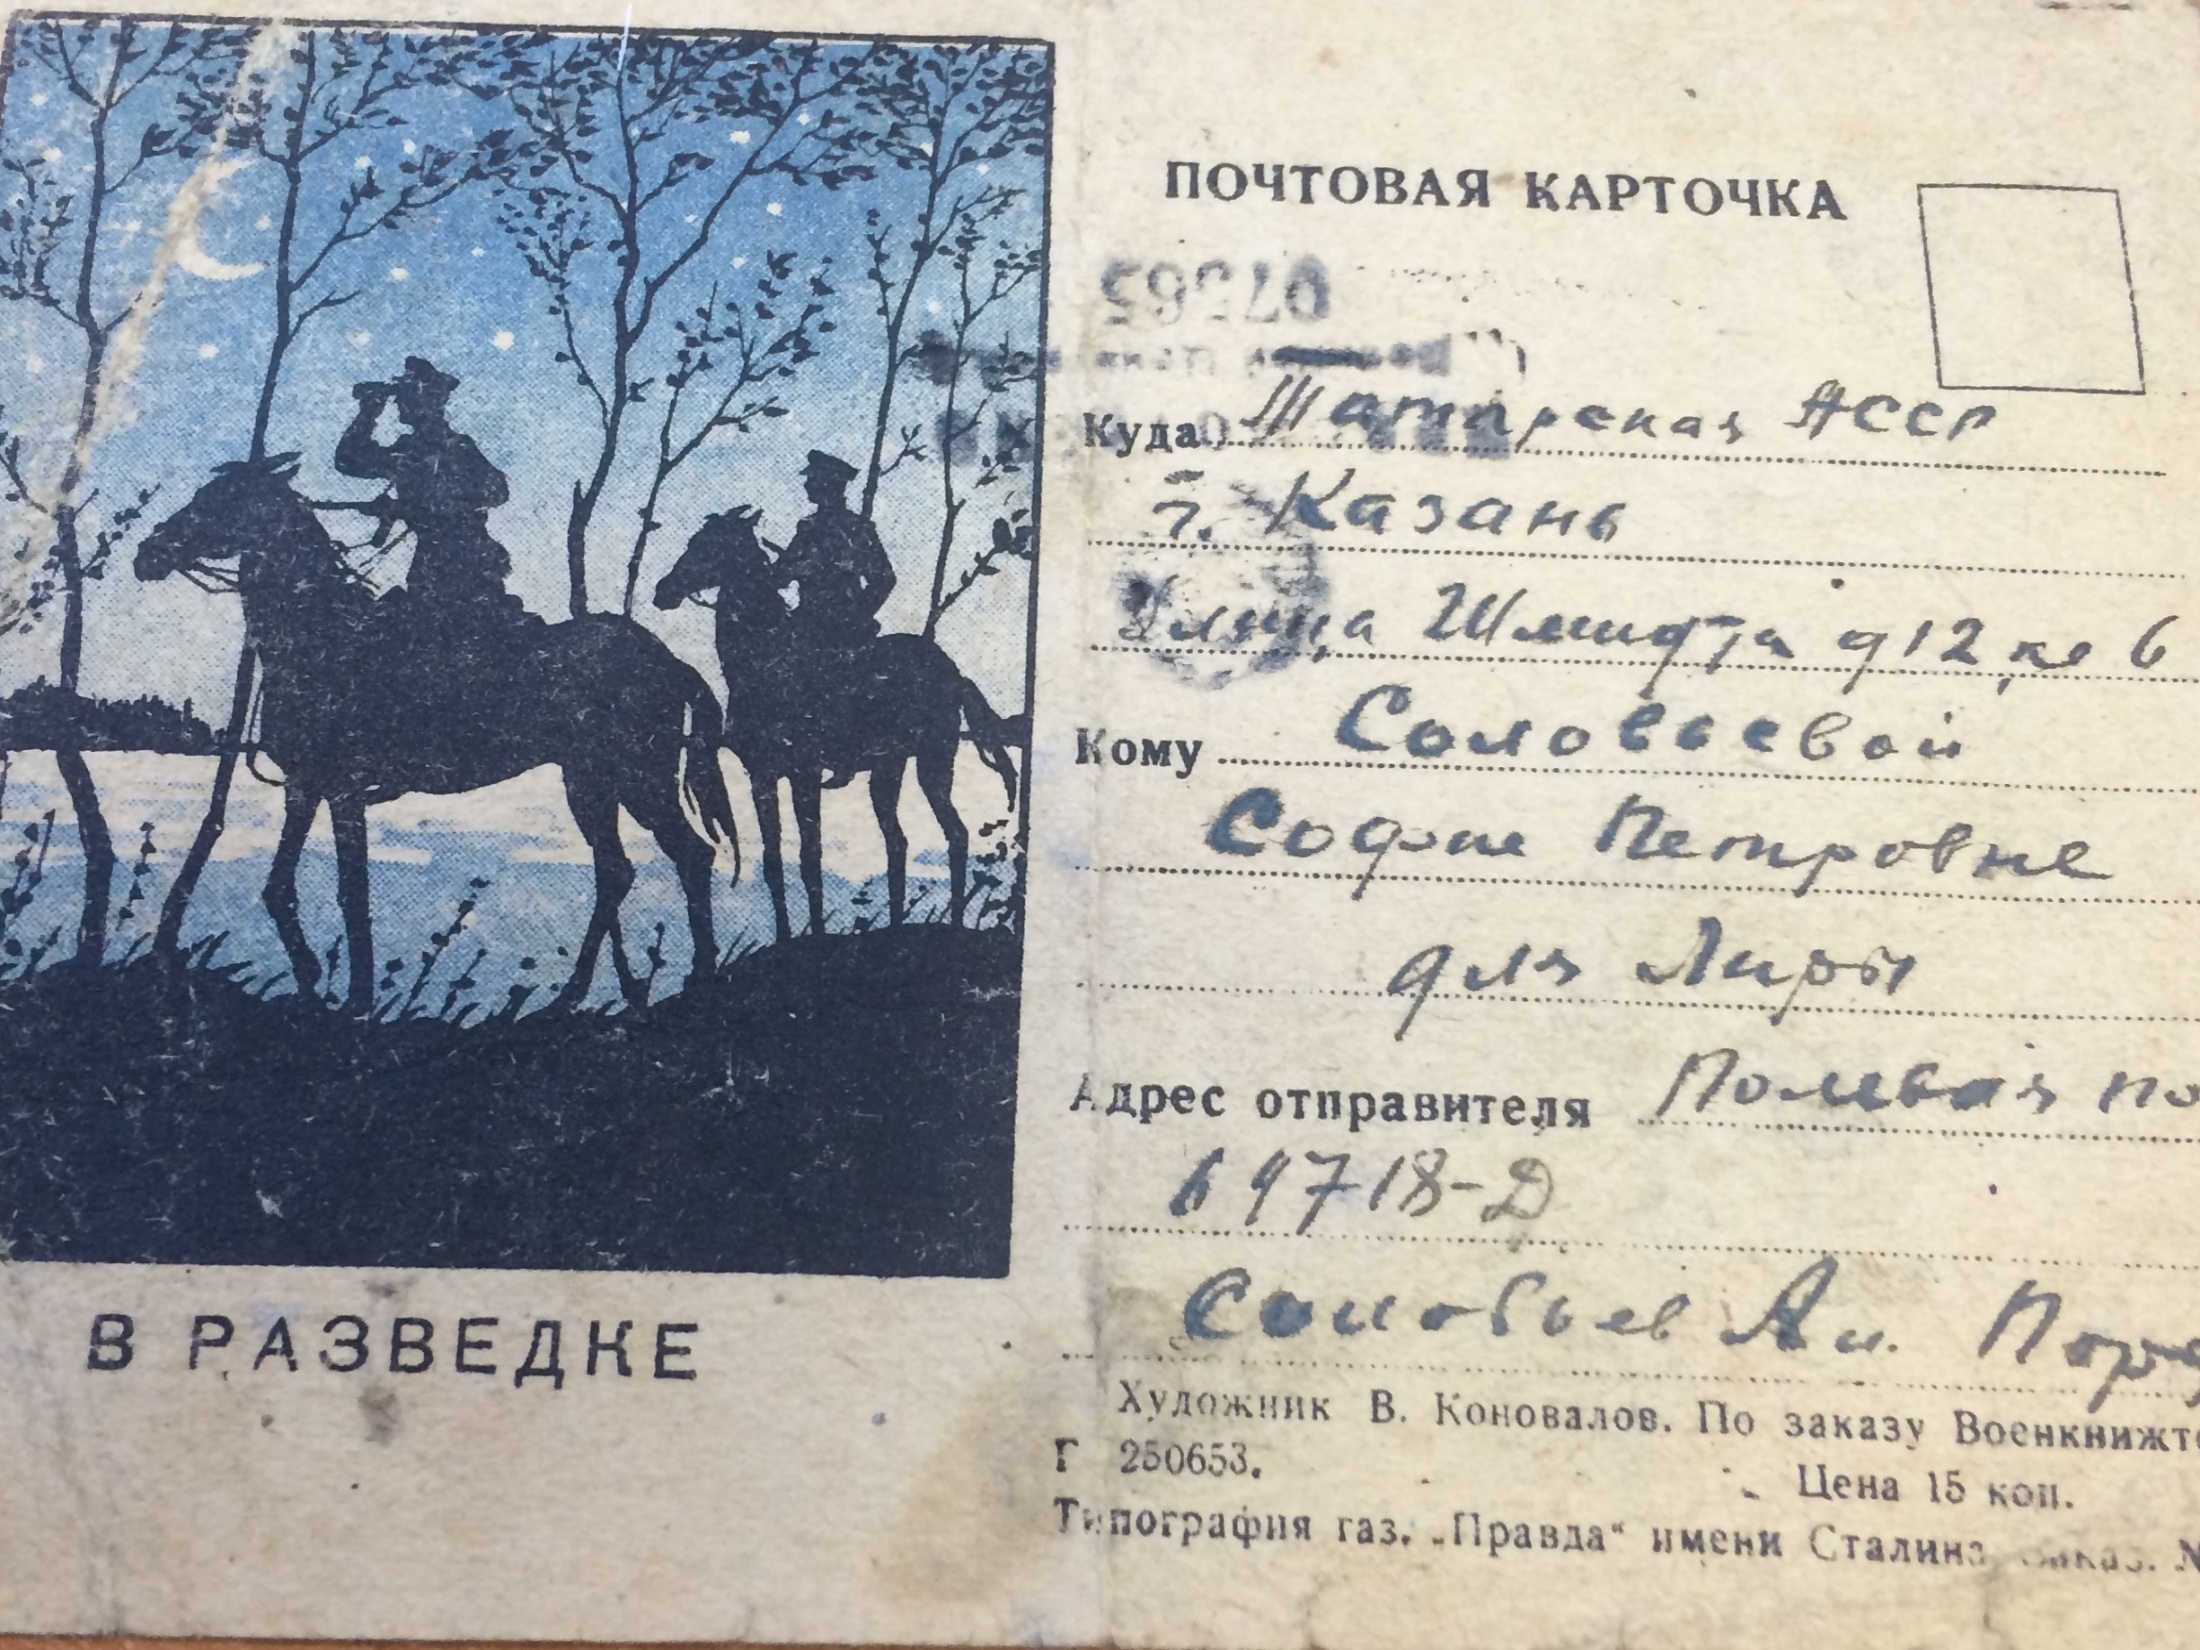 ПОЧТОВАЯ КАРТОЧКА
07565
Куда Татарская АССР
г. Казань
Улица Шмидта д 12 кв 6
Кому Соловьевой
Софие Петровне
для Лиры
Адрес отправителя Полевая по
64718-Д
Соловьев Ал.
В РАЗВЕДКЕ
Художник В. Коновалов. По заказу Военкнижт
Г 250653.
Цена 15 коп.
Типография газ. „Правда“ имени Сталина. Заказ. №